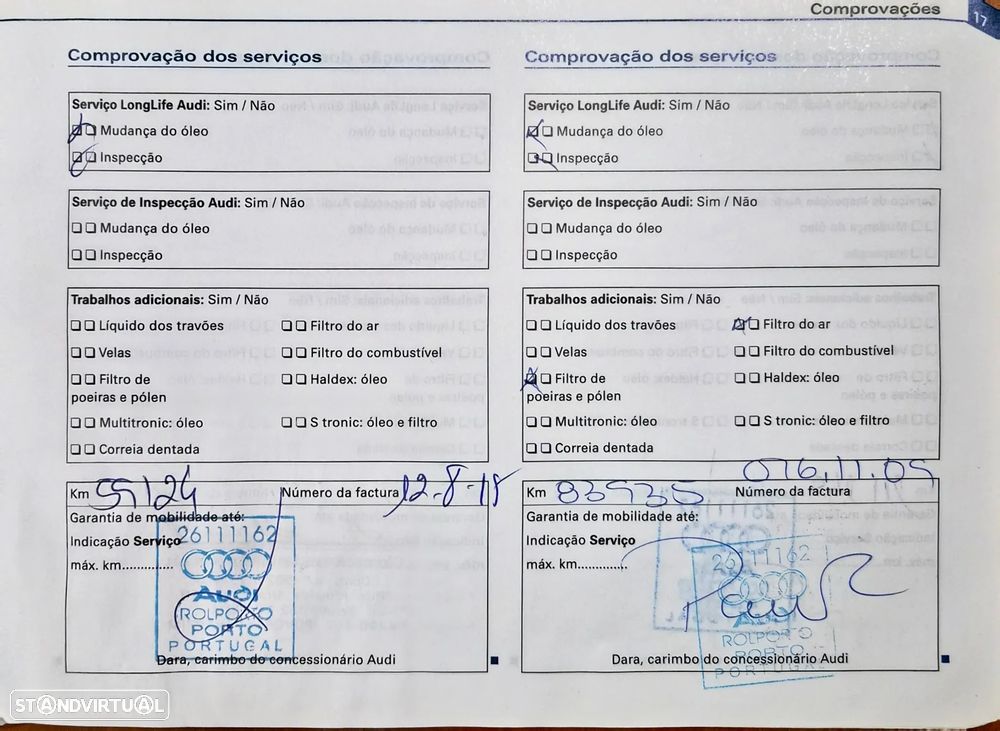 Comprovações
17
Comprovação dos serviços
Serviço LongLife Audi: Sim / Não
Mudança do óleo
Inspecção
Serviço de Inspecção Audi: Sim / Não
Mudança do óleo
Inspecção
Trabalhos adicionais: Sim / Não
Líquido dos travões Filtro do ar
Velas Filtro do combustível
Filtro de Haldex: óleo
poeiras e pólen
Multitronic: óleo S tronic: óleo e filtro
Correia dentada
Km 55124 Número da factura 12-8-15
Garantia de mobilidade até:
Indicação Serviço
máx. km.............
26111162
Audi
ROLPORTO
PORTO
PORTUGAL
Dara, carimbo do concessionário Audi
Comprovação dos serviços
Serviço LongLife Audi: Sim / Não
Mudança do óleo
Inspecção
Serviço de Inspecção Audi: Sim / Não
Mudança do óleo
Inspecção
Trabalhos adicionais: Sim / Não
Líquido dos travões Filtro do ar
Velas Filtro do combustível
Filtro de Haldex: óleo
poeiras e pólen
Multitronic: óleo S tronic: óleo e filtro
Correia dentada
Km 83935 Número da factura
Garantia de mobilidade até:
Indicação Serviço
máx. km.............
26111162
Audi
ROLPORTO
PORTO
PORTUGAL
Dara, carimbo do concessionário Audi
STANDVIRTUAL